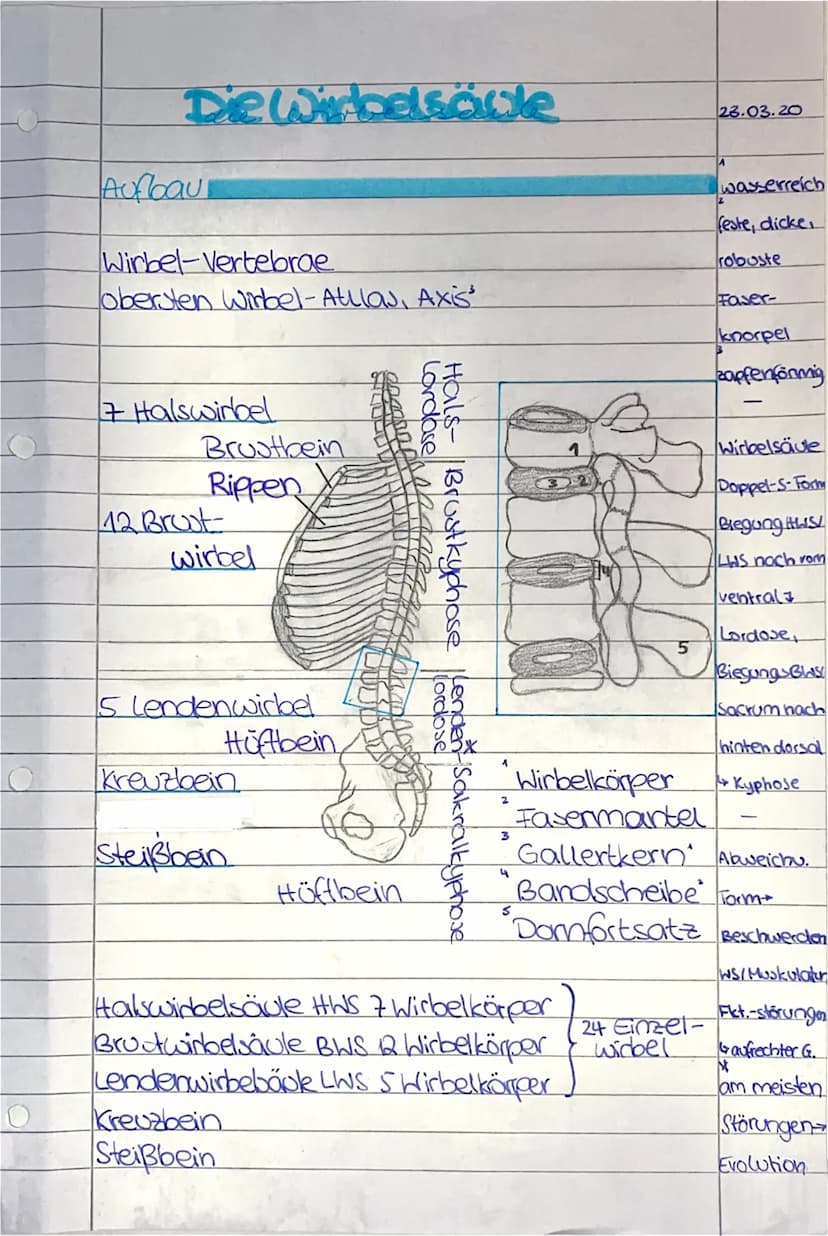 Die Wirbelsäule
23.03.20
Aufbau
Wirbel-Vertebrae
obersten Wirbel-Atlas, Axis³
7 Halswirbel
Brustbein
Rippen
12 Brust-
wirbel
5 Lendenwirbel
Hüftbein
Kreuzbein
Steißbein
Hüftbein
Hals-
lordose
Brustkyphose
Lenden-*
lordose
Sakralkyphose
1
3 2
4
5
¹ Wirbelkörper
² Fasermantel
³ Gallertkern¹
⁴ Bandscheibe²
⁵ Dornfortsatz
Halswirbelsäule HWS 7 Wirbelkörper
Brustwirbelsäule BWS 12 Wirbelkörper
Lendenwirbelsäule LWS 5 Wirbelkörper
24 Einzel-
wirbel
Kreuzbein
Steißbein
1
wasserreich
2
feste, dicke,
robuste
Faser-
knorpel
3
zapfenförmig
–
Wirbelsäule
Doppel-S-Form
Biegung HWS/
LWS nach vorn
ventral →
Lordose,
Biegungs BWS/
Sacrum nach
hinten dorsal
↳ Kyphose
–
Abweichu.
Form→
Beschwerden
WS/Muskulatur
Fkt.-störungen
↳ aufrechter G.
*
am meisten
Störungen→
Evolution